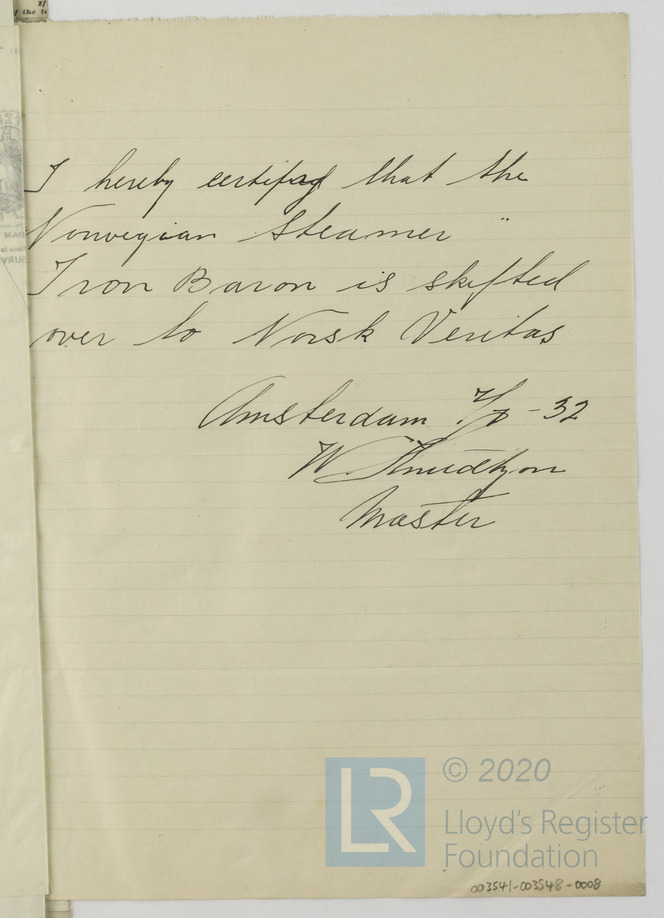 I hereby certifay that the
Norwegian Steamer "
Iron Baron is skifted
over to Norsk Veritas
Amsterdam 7/7-32
W Knudtzon
Master
© 2020
LR
Lloyd's Register
Foundation
003541-003548-0008